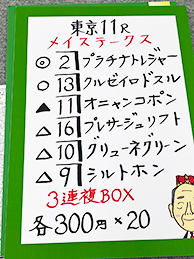 東京11R
メイステークス
◎ 2 プラチナトレジャー
○ 13 クルゼイロドスル
▲ 11 オニャンコポン
△ 16 プレサージュリフト
△ 10 グリューネグリーン
△ 9 シルトホン
3連複BOX
各300円×20